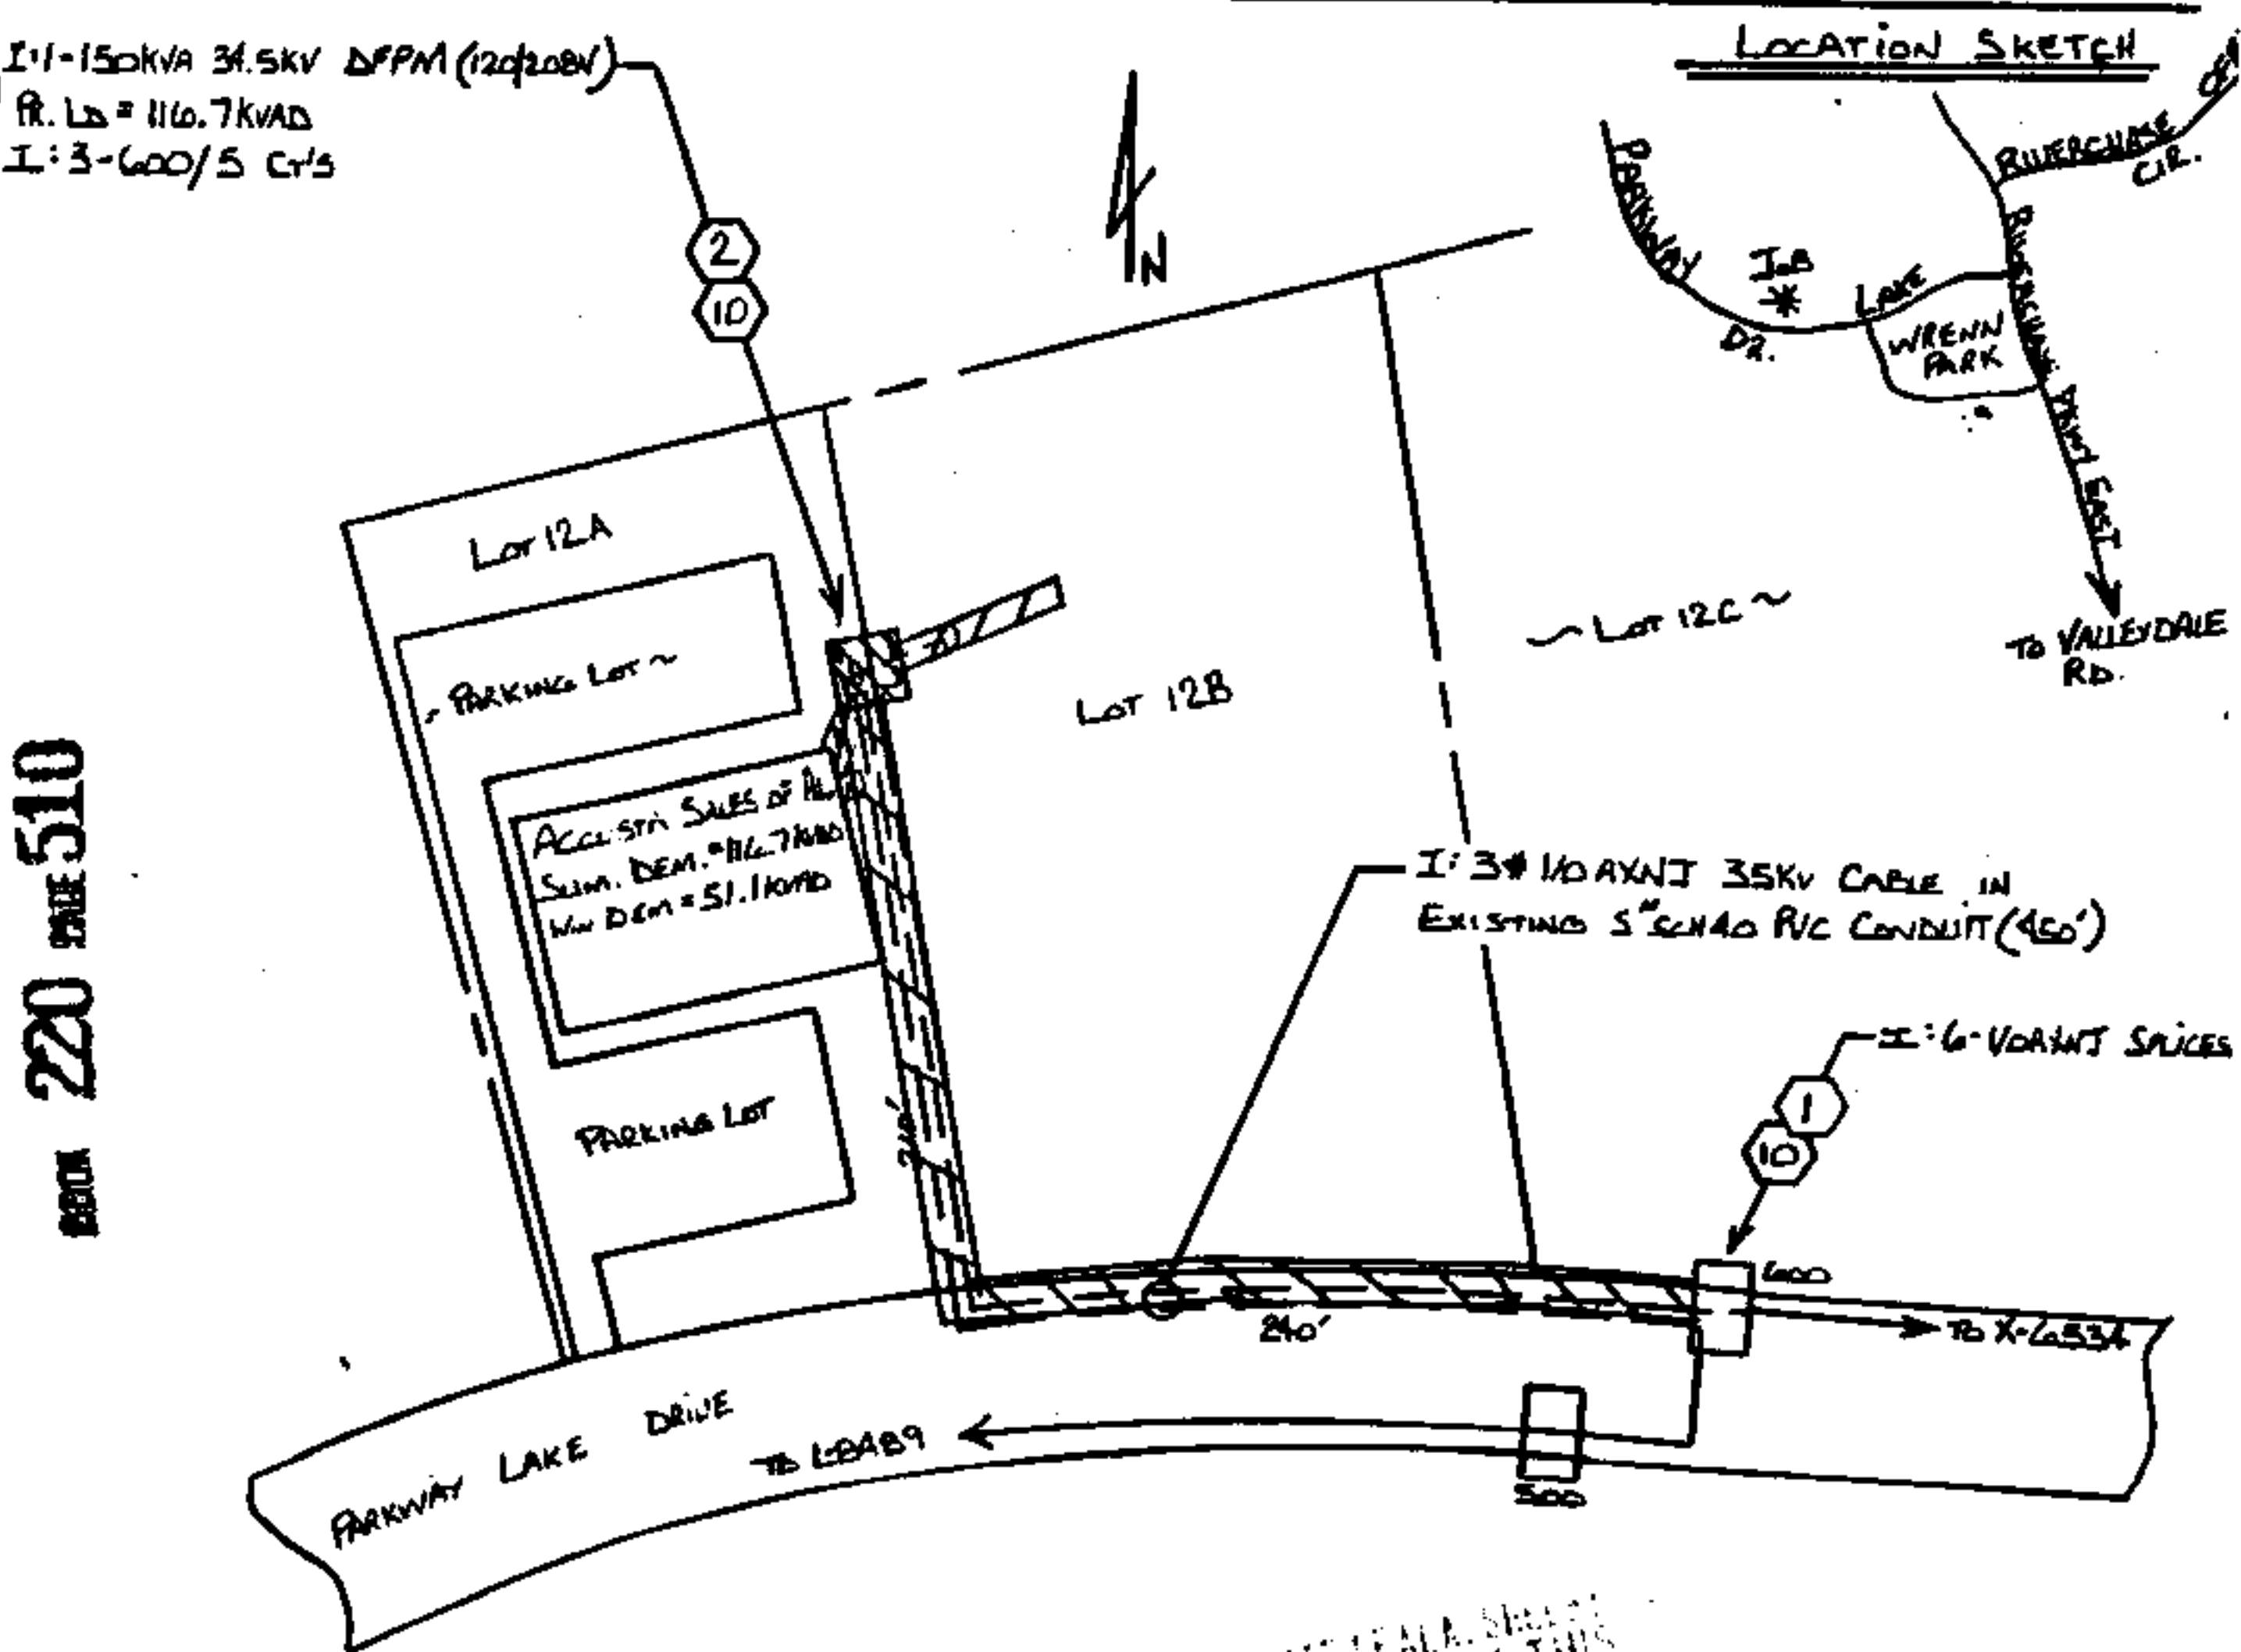 LOCATION SKETCH
I:1-150KVA 34.5KV DFPM (120/208V)
PR. LD = 116.7KVAD
I:3-600/5 CT'S
2
10
N
PARKWAY
LAKE
DR.
JOB
*
WRENN
PARK
RIVERCHASE
CIR.
RIVERCHASE
PKWY EAST
TO VALLEYDALE
RD.
LOT 12A
~ PARKING LOT ~
LOT 12B
~ LOT 12C ~
SALES OF
SUM. DEM. = 116.7KVAD
WIN DEM = 51.1KVAD
PARKING LOT
I: 3# 1/0 AXNJ 35KV CABLE IN
EXISTING 5" SCH 40 PVC CONDUIT (450')
I: 6-1/0AXNJ SPLICES
1
10
600
240'
TO
500
TO
PARKWAY LAKE DRIVE
BOOK 220 PAGE 510